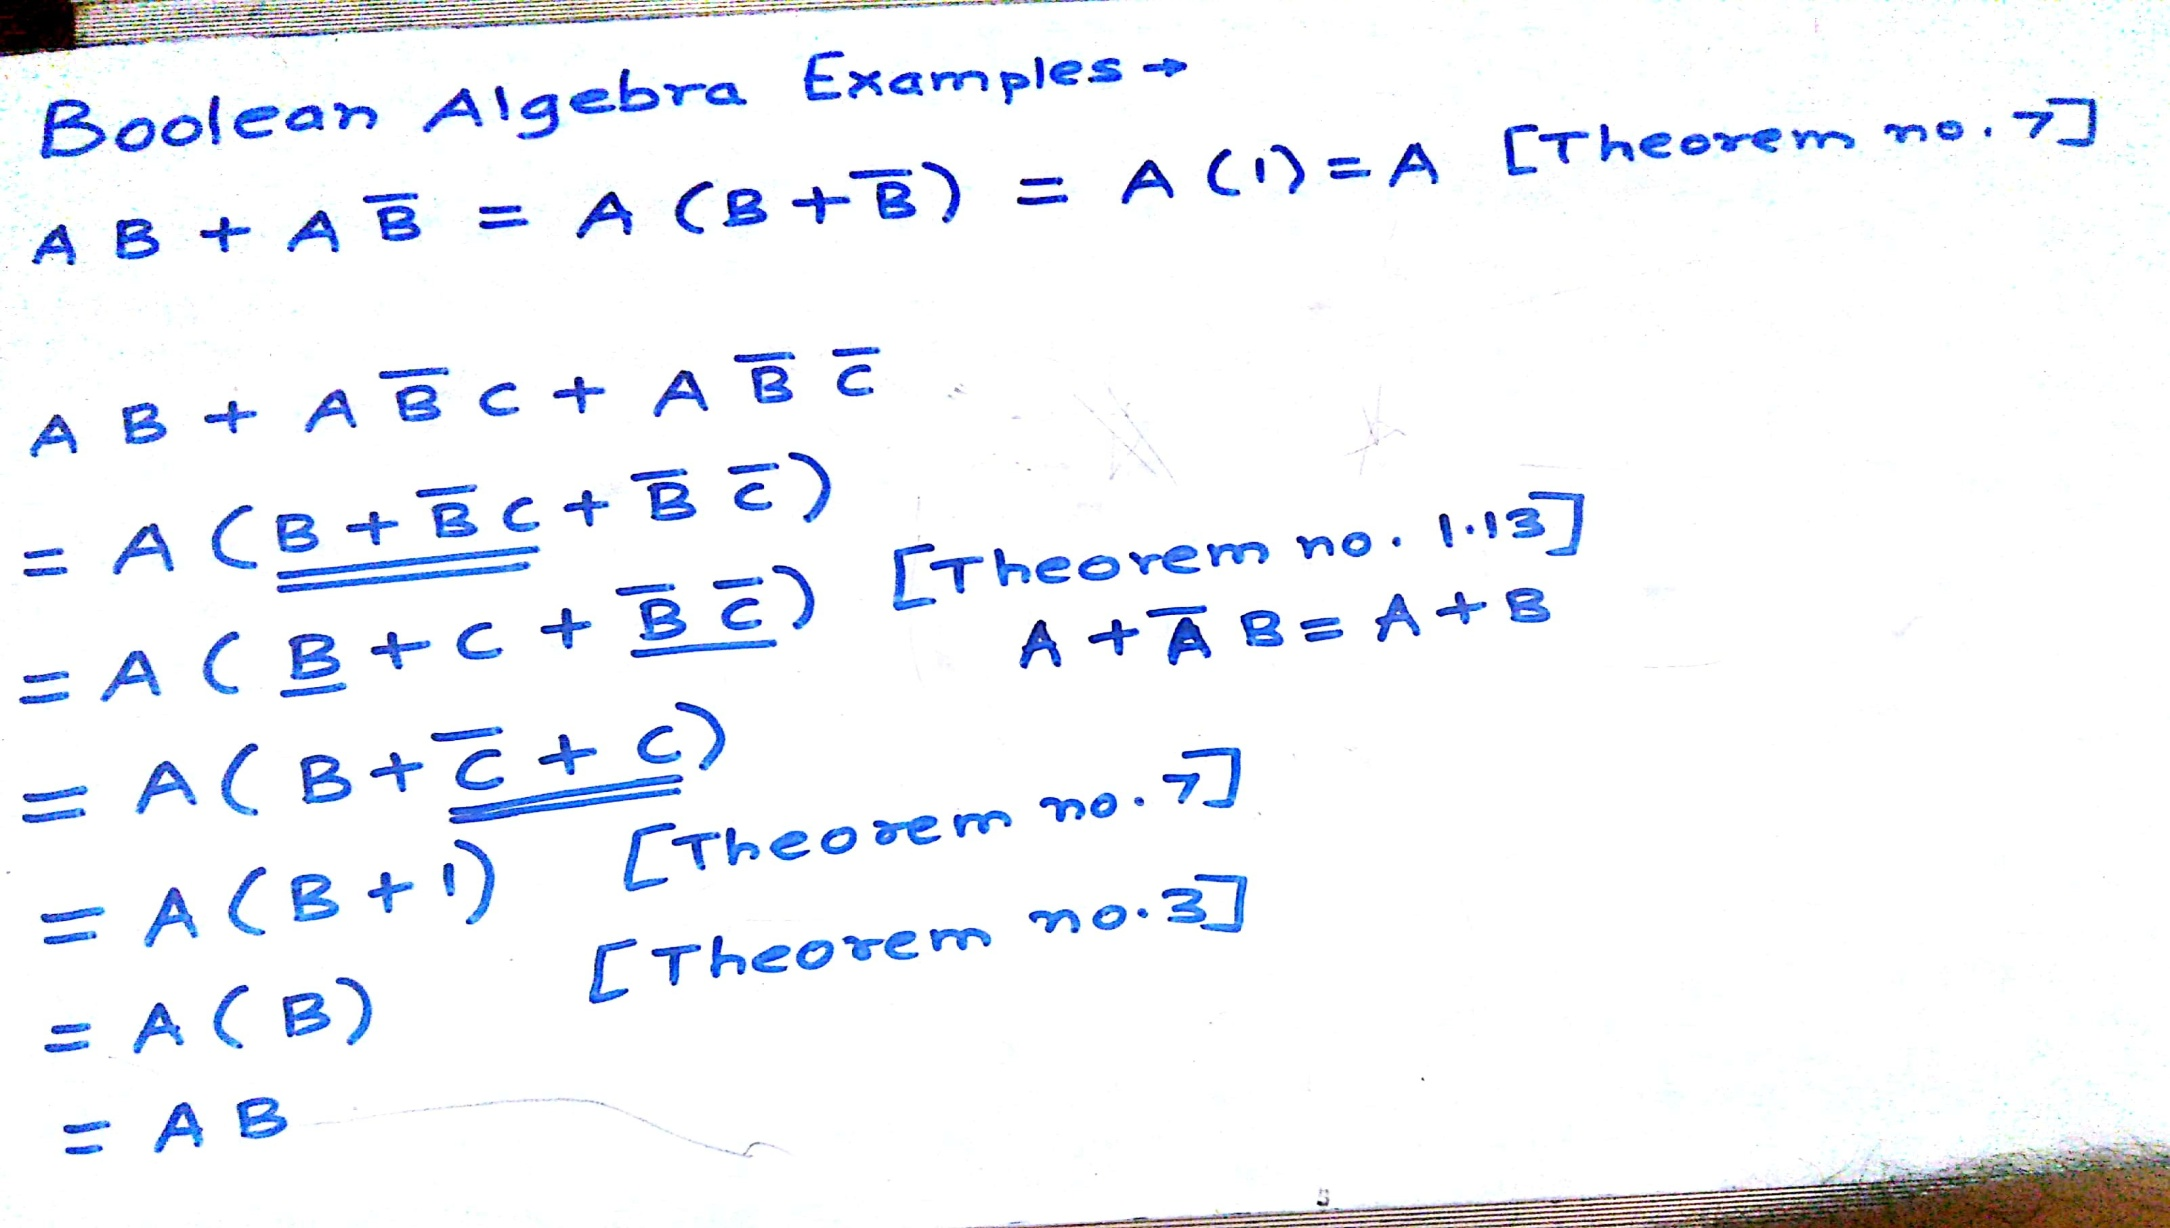 Boolean Algebra Examples →
AB + AB̅ = A (B + B̅) = A (1) = A [Theorem no. 7]
AB + AB̅C + AB̅C̅
= A (B + B̅C + B̅C̅)
= A (B + C + B̅C̅) [Theorem no. 1.13]
A + A̅B = A + B
= A (B + C̅ + C)
= A (B + 1) [Theorem no. 7]
= A (B) [Theorem no. 3]
= AB